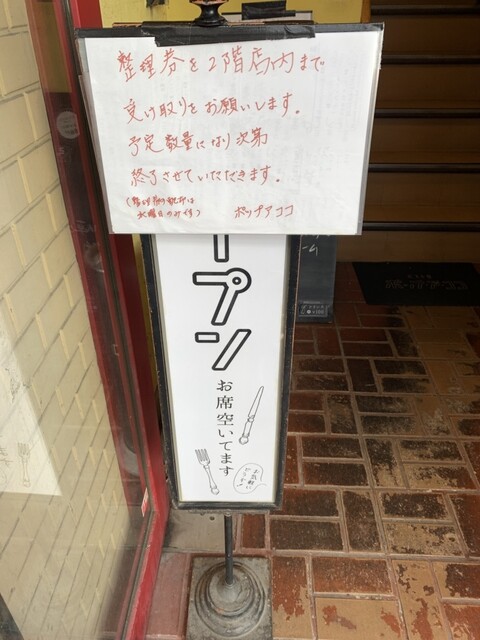 整理券を2階店内まで
受け取りをお願いします。
予定数量になり次第
終了させていただきます。
(整理券の配布は
水曜日のみです)
ポップアココ
ープン
お席空いてます
お気軽に
どうぞ!